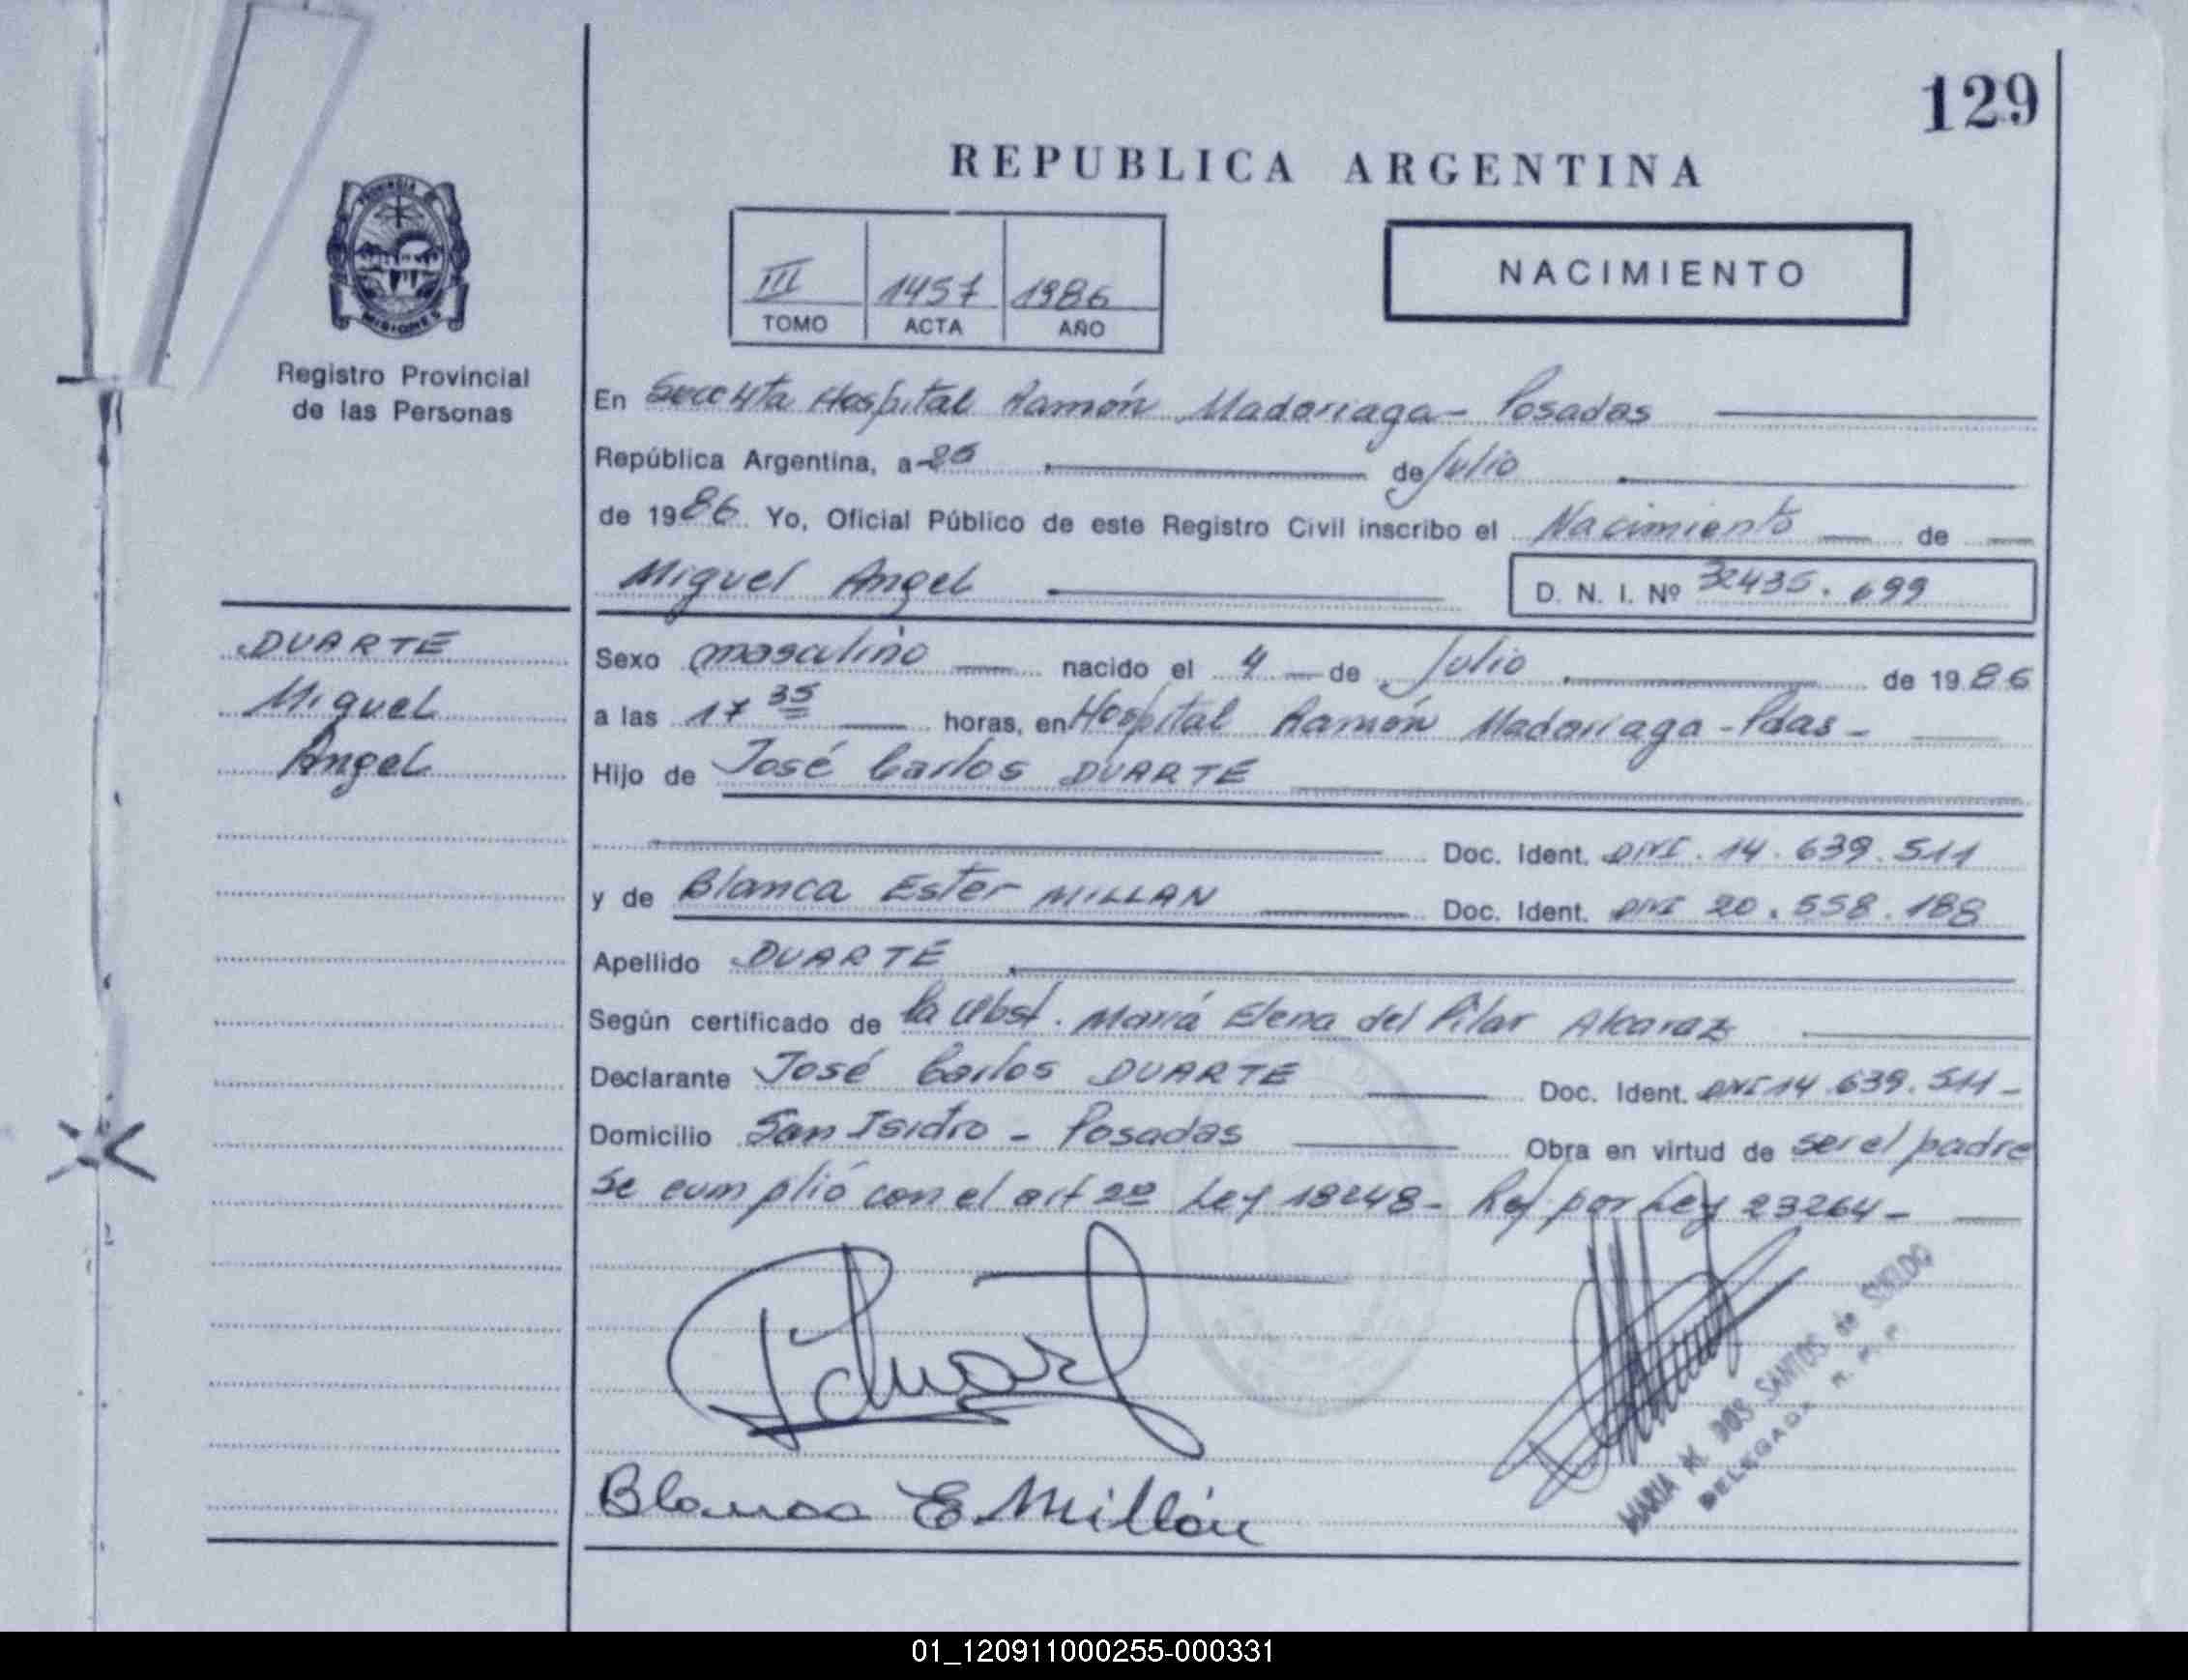 129
REPUBLICA ARGENTINA
PROVINCIA
MISIONES
Registro Provincial
de las Personas
III 1457 1986
TOMO ACTA AÑO
NACIMIENTO
En Secc 4ta Hospital Ramón Madariaga - Posadas
República Argentina, a 25 de Julio
de 1986 Yo, Oficial Público de este Registro Civil inscribo el Nacimiento de
Miguel Angel D. N. I. Nº 32435.699
DUARTE
Miguel
Angel
Sexo masculino nacido el 4 de Julio de 1986
a las 17 35 horas, en Hospital Ramón Madariaga - Pdas -
Hijo de José Carlos DUARTE
Doc. Ident. DNI. 14.639.511
y de Blanca Ester MILLAN Doc. Ident. DNI 20.558.188
Apellido DUARTE
Según certificado de la Obst. María Elena del Pilar Alcaraz
Declarante José Carlos DUARTE Doc. Ident. DNI 14.639.511 -
Domicilio San Isidro - Posadas Obra en virtud de ser el padre
Se cumplió con el art 2º Ley 18248 - Ref por Ley 23264 -
Duart
Blanca E. Millán
MARIA M. DOS SANTOS de
DELEGADA
01_120911000255-000331